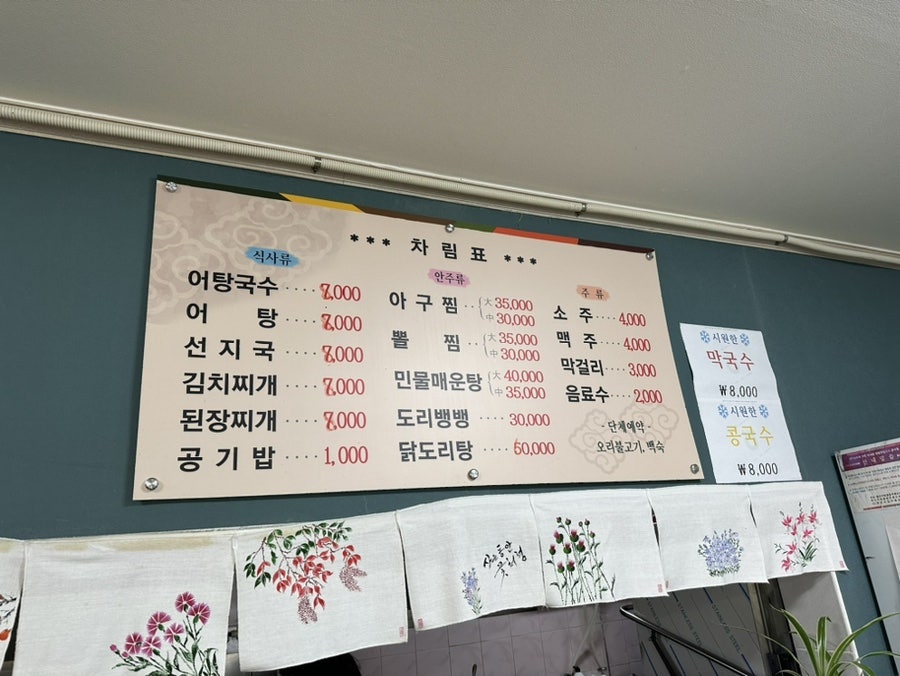 *** 차림표 ***
식사류
어탕국수 ···· 8,000
어탕 ···· 8,000
선지국 ···· 8,000
김치찌개 ···· 8,000
된장찌개 ···· 8,000
공기밥 ···· 1,000
안주류
아구찜 ·· 大 35,000
中 30,000
뽈찜 ·· 大 35,000
中 30,000
민물매운탕 大 40,000
中 35,000
도리뱅뱅 ···· 30,000
닭도리탕 ···· 60,000
주류
소주 ···· 4,000
맥주 ···· 4,000
막걸리 ···· 3,000
음료수 ···· 2,000
- 단체예약 -
오리불고기, 백숙
시원한
막국수
₩8,000
시원한
콩국수
₩8,000